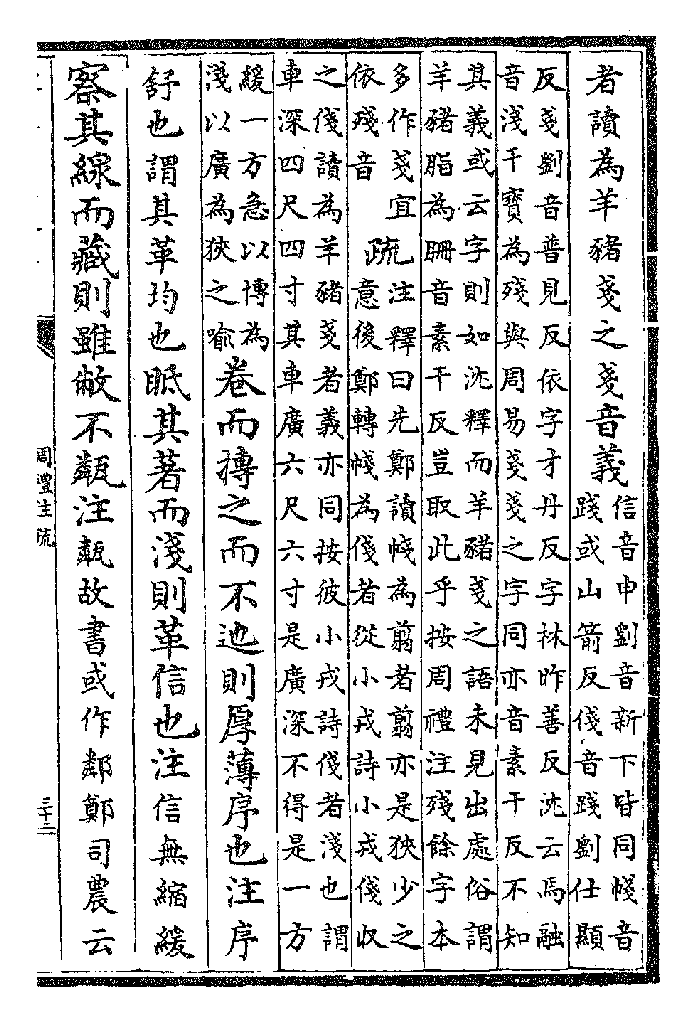 者讀為羊豬戔之戔音義信音申劉音新下皆同帴音
踐或山箭反俴音踐劉仕顯
反戔劉音普見反依字才丹反字林昨善反沈云馬融
音淺干寶為殘與周易戔戔之字同亦音素干反不知
其義或云字則如沈釋而羊豬戔之語未見出處俗謂
羊豬脂為音素干反豈取此乎按周禮注殘餘字本
多作戔宜
依殘音
疏注釋曰先鄭讀帴為翦者翦亦是狹少之
意後鄭轉帴為俴者從小戎詩小戎俴收
之俴讀為羊豬戔者義亦同按彼小戎詩俴者淺也謂
車深四尺四寸其車廣六尺六寸是廣深不得是一方
緩一方急以博為
淺以廣為狹之喻
卷而摶之而不迆則厚薄序也注序
舒也謂其革均也眡其著而淺則革信也注信無縮緩
察其線而藏則雖敝不甐注甐故書或作鄰鄭司農云
周禮注疏
三十二